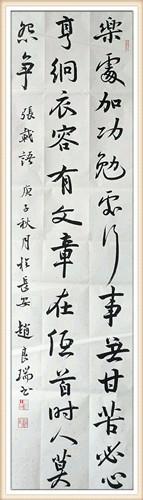 樂處加功勉處行事無甘苦必心
亨絅衣容有文章在恒首時人莫
怨争 張載語 庚子秋月於長安 趙良瑞書